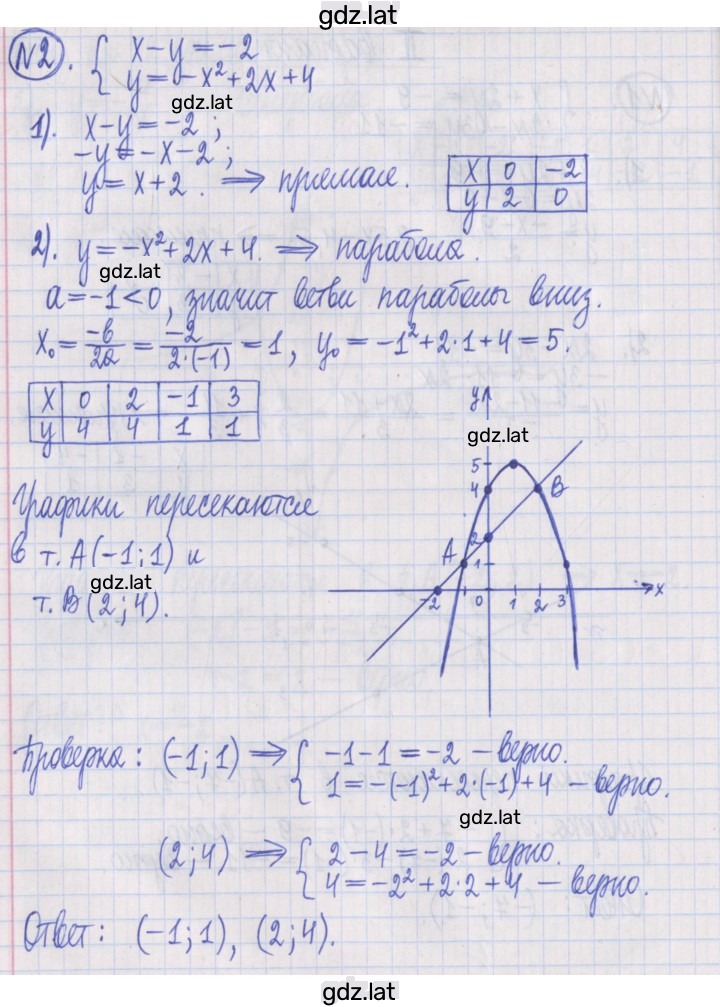 gdz.lat
N2. { x-y=-2
y=-x²+2x+4
gdz.lat
1). x-y=-2;
-y=-x-2;
y=x+2. ⟹ прямая.
x 0 -2
y 2 0
2). y=-x²+2x+4. ⟹ парабола.
gdz.lat
a=-1<0, значит ветви параболы вниз.
x₀ = -b/2a = -2/2·(-1) = 1, y₀ = -1²+2·1+4=5.
x 0 2 -1 3
y 4 4 1 1
y
gdz.lat
5
4
B
2
A
1
-2 0 1 2 3 x
Графики пересекаются
в т. A(-1;1) и
gdz.lat
т. B(2;4).
Проверка: (-1;1) ⟹ { -1-1=-2 - верно.
1=-(-1)²+2·(-1)+4 - верно.
gdz.lat
(2;4) ⟹ { 2-4=-2 - верно.
4=-2²+2·2+4 - верно.
Ответ: (-1;1), (2;4).
gdz.lat